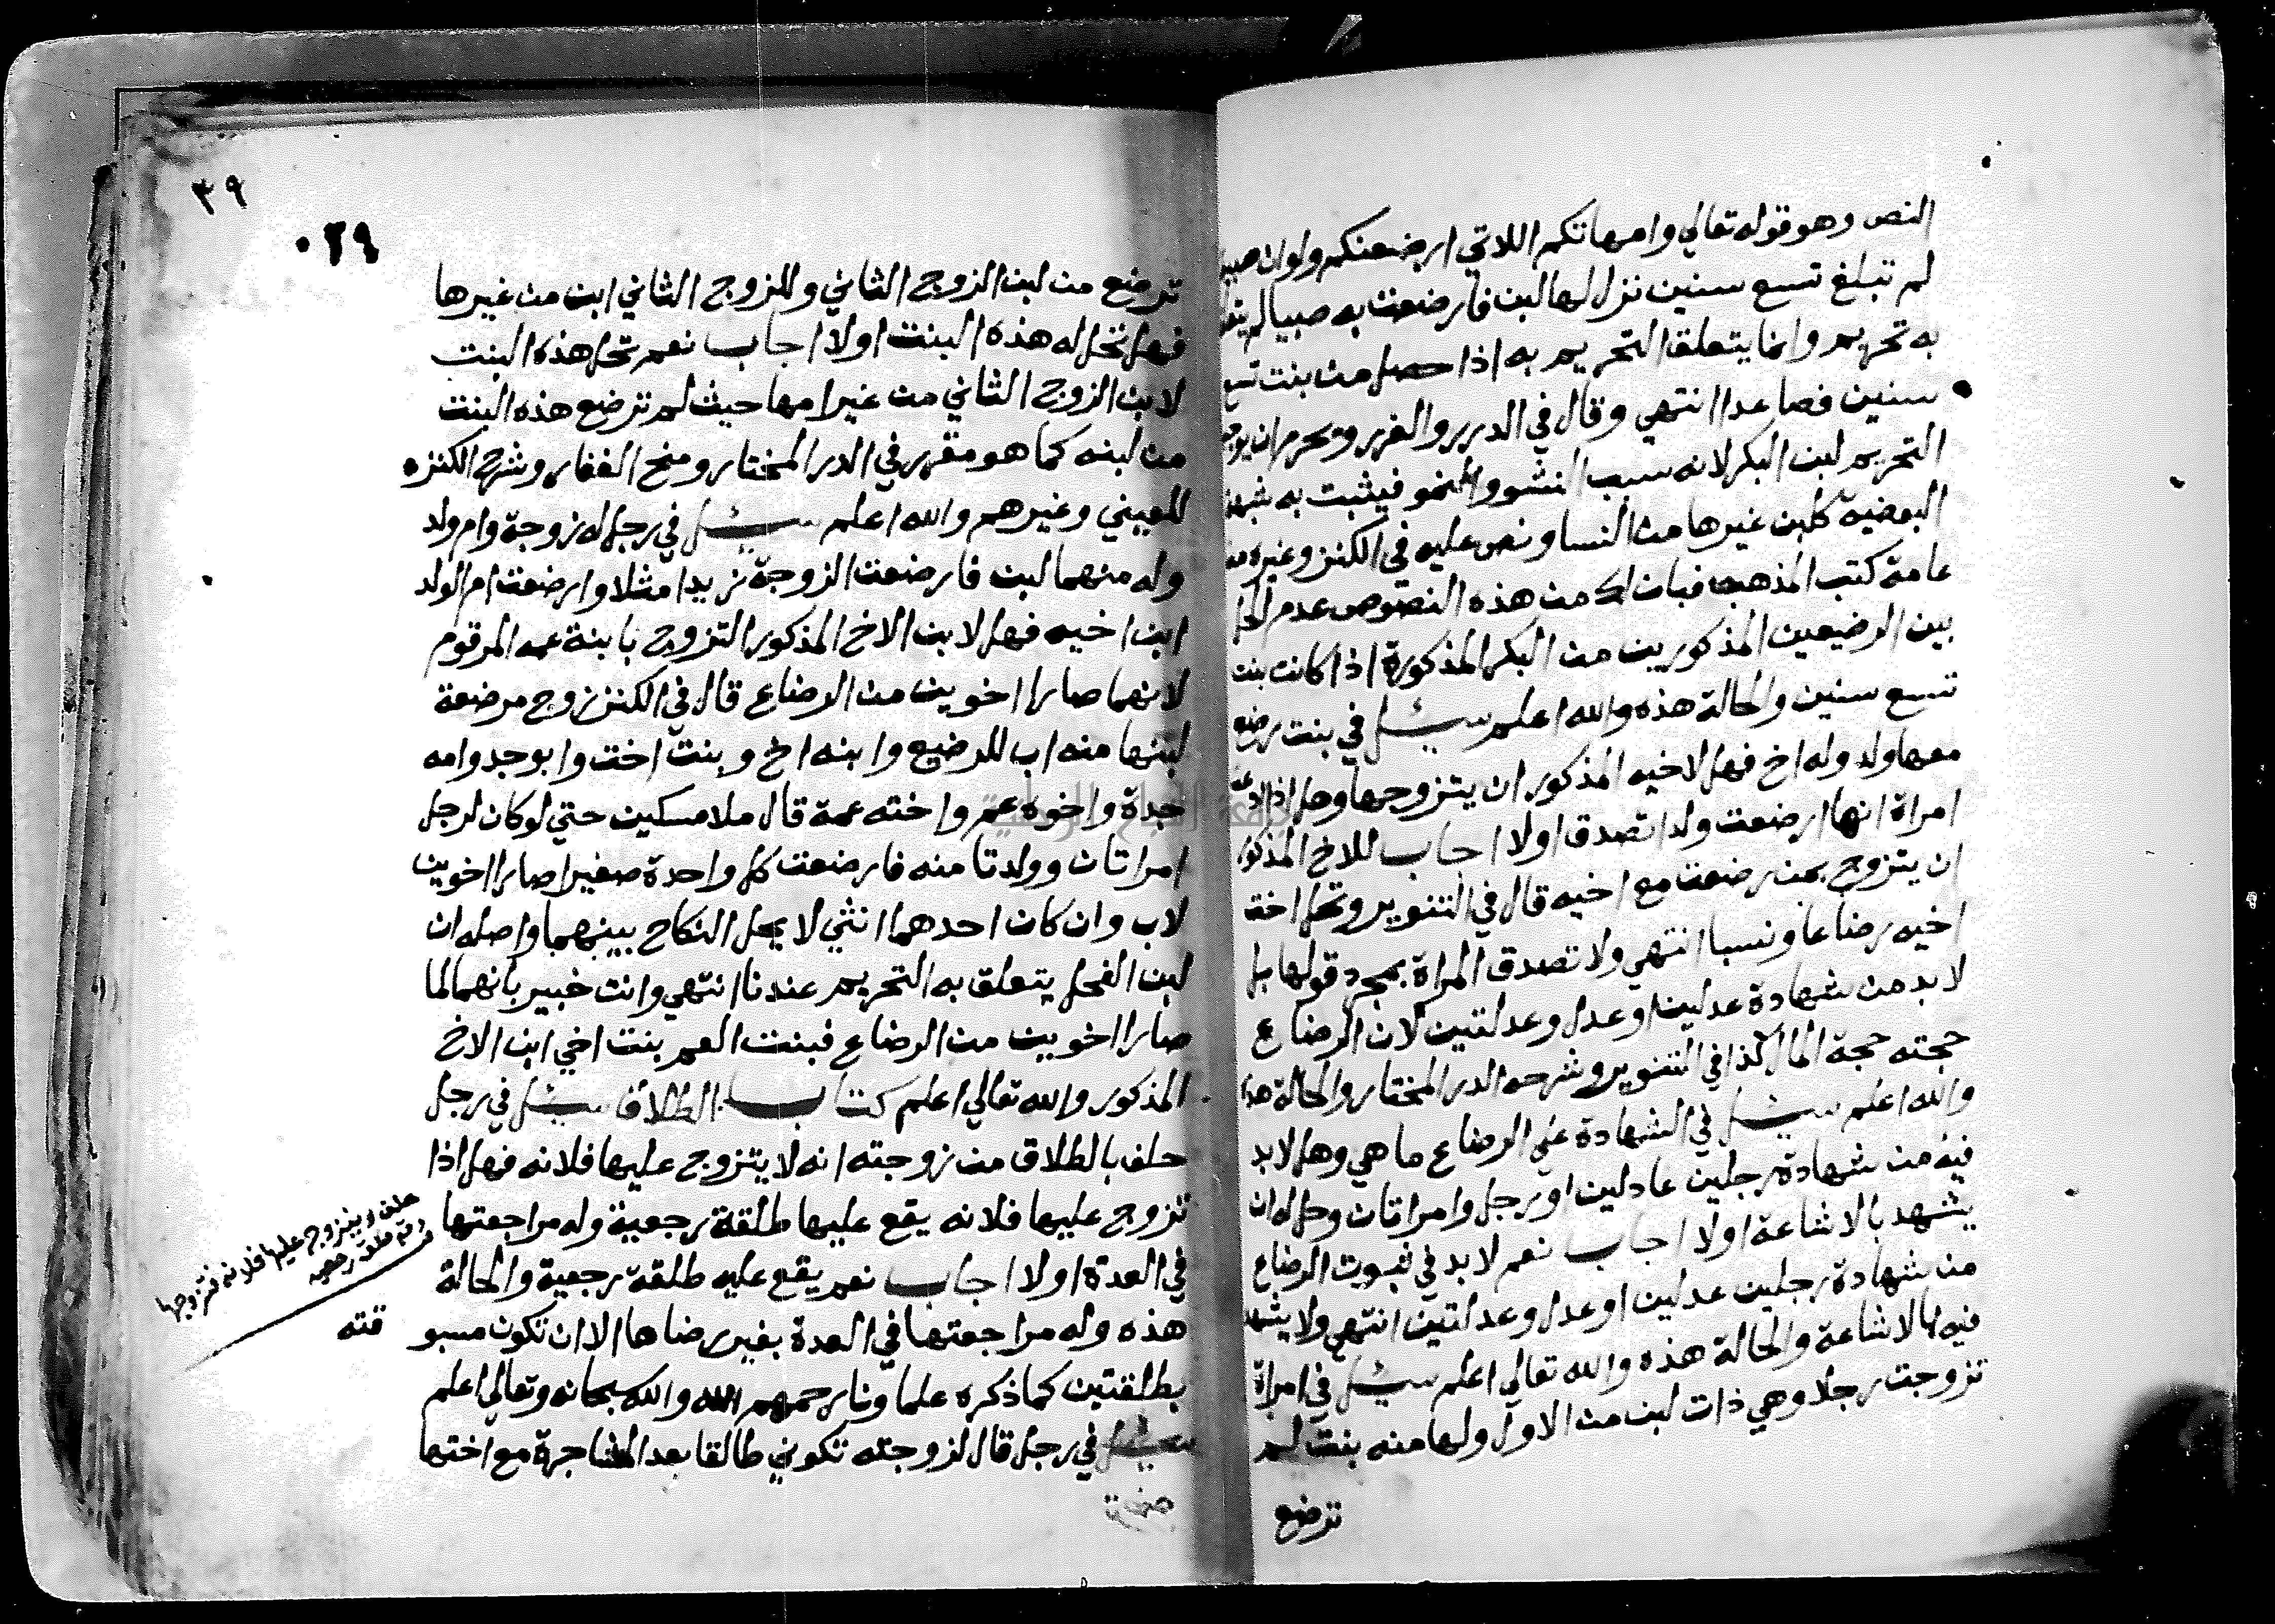 النص وهو قوله تعالي وامهاتكم اللاتي ارضعنكم ولوان صبية
لم تبلغ تسع سنين نزل لها لبن فارضعت به صبيا لم يتعلق
به تحريم وانما يتعلق التحريم به اذا حصل من بنت تسع
سنين فصاعدا انتهي وقال في الدرر والغرر
التحريم لبن البكر لانه سبب النشو والنمو فيثبت به شبهة
البعضية كلبن غيرها من النسا ونص عليه في الكنز وغيره
عامة كتب المذهب فبان لك من هذه النصوص عدم الحل
بين الرضيعين المذكورين من البكر المذكورة اذا كانت بنت
تسع سنين والحالة هذه والله اعلم سئل في بنت رضع
معها ولد وله اخ فهل لاخيه المذكور ان يتزوجها وهل اذا ادعت
امراة انها ارضعت ولدا تصدق اولا اجاب للاخ المذكور
ان يتزوج بمن رضعت مع اخيه قال في التنوير وتحل اخت
اخيه رضاعا ونسبا انتهي ولا تصدق المراة بمجرد قولها بل
لا بد من شهادة عدلين او عدل وعدلتين لان الرضاع
حجته حجة المال كذا في التنوير وشرحه الدر المختار والحالة هذه
والله اعلم سئل في الشهادة علي الرضاع ما هي وهل لا بد
فيه من شهادة رجلين عادلين او رجل وامراتان وهل له ان
يشهد بالاشاعة اولا اجاب نعم لا بد في ثبوت الرضاع
من شهادة رجلين عدلين او عدل وعدلتين انتهي ولا يشهد
فيه بالاشاعة والحالة هذه والله تعالي اعلم سئل في امراة
تزوجت رجلا وهي ذات لبن من الاول ولها منه بنت لم
ترضع
٣٩
٠٢٩
ترضع من لبن الزوج الثاني وللزوج الثاني ابن من غيرها
فهل تحل له هذه البنت اولا اجاب نعم تحل هذه البنت
لابن الزوج الثاني من غير امها حيث لم ترضع هذه البنت
من لبنه كما هو مقرر في الدر المختار ومنح الغفار وشرح الكنز
للعيني وغيرهم والله اعلم سئل في رجل له زوجة وام ولد
وله منهما لبن فارضعت الزوجة زيدا مثلا وارضعت ام الولد
ابن اخيه فهل لابن الاخ المذكور التزوج بابنة عمه المرقوم
لانهما صارا اخوين من الرضاع قال في الكنز زوج مرضعة
لبنها منه اب للرضيع وابنه اخ وبنت اخت وابو جد وامه
جدة واخوه عم واخته عمة قال ملا مسكين حتي لو كان لرجل
امراتان وولدتا منه فارضعت كل واحدة صغيرا صارا اخوين
لاب وان كان احدهما انثي لا يحل النكاح بينهما واصله ان
لبن الفحل يتعلق به التحريم عندنا انتهي وانت خبير بانهما لما
صارا اخوين من الرضاع فبنت العم بنت اخي ابن الاخ
المذكور والله تعالي اعلم كتاب الطلاق سئل في رجل
حلف بالطلاق من زوجته انه لا يتزوج عليها فلانه فهل اذا
تزوج عليها فلانه يقع عليها طلقة رجعية وله مراجعتها
في العدة اولا اجاب نعم يقع عليه طلقة رجعية والحالة
هذه وله مراجعتها في العدة بغير رضاها الا ان تكون مسبو
قته
بطلقتين كما ذكره علماونا رحمهم الله والله سبحانه وتعالي اعلم
سئل في رجل قال لزوجته تكوني طالقا بعد المشاجرة مع اختها
عليها فلانه فتزوجها
رجعيه